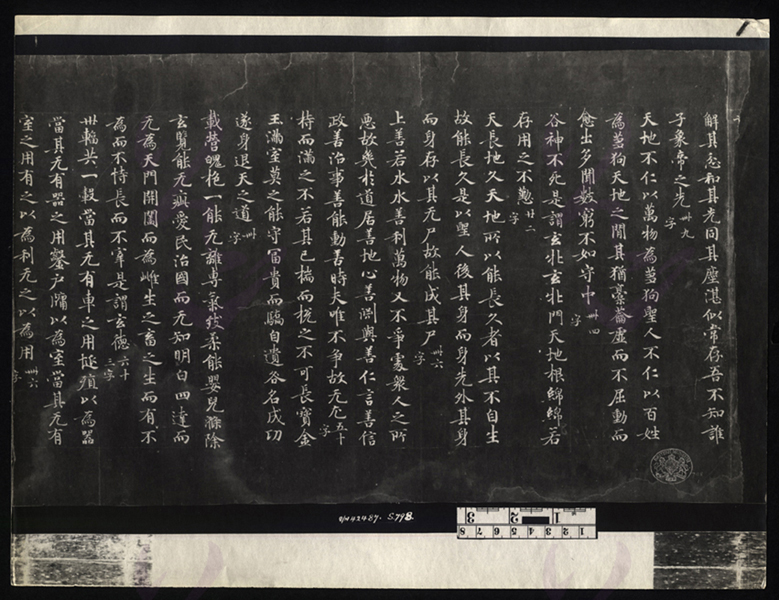 解其忿和其光同其塵湛似常存吾不知誰
子象帝之先 卌九字
天地不仁以萬物為芻狗聖人不仁以百姓
為芻狗天地之間其猶橐籥虛而不屈動而
愈出多聞數窮不如守中 卌四字
谷神不死是謂玄牝玄牝門天地根綿綿若
存用之不勤 廿二字
天長地久天地所以能長久者以其不自生
故能長久是以聖人後其身而身先外其身
而身存以其无尸故能成其尸 卌六字
上善若水水善利萬物又不爭處衆人之所
惡故幾於道居善地心善淵與善仁言善信
政善治事善能動善時夫唯不爭故无尤 五十字
持而滿之不若其已揣而梲之不可長寶金
玉滿室莫之能守富貴而驕自遺咎名成功
遂身退天之道 卌字
載營魄抱一能无離專氣致柔能嬰兒滌除
玄覽能无疵愛民治國而无知明白四達而
无為天門開闔而為雌生之畜之生而有不
為而不恃長而不宰是謂玄德 六十三字
卅輻共一轂當其无有車之用埏殖以為器
當其无有器之用鑿戶牖以為室當其无有
室之用有之以為利无之以為用 卌六字
Or.8210 S.798.
3 2 1
8 7 6 5 4 3 2 1